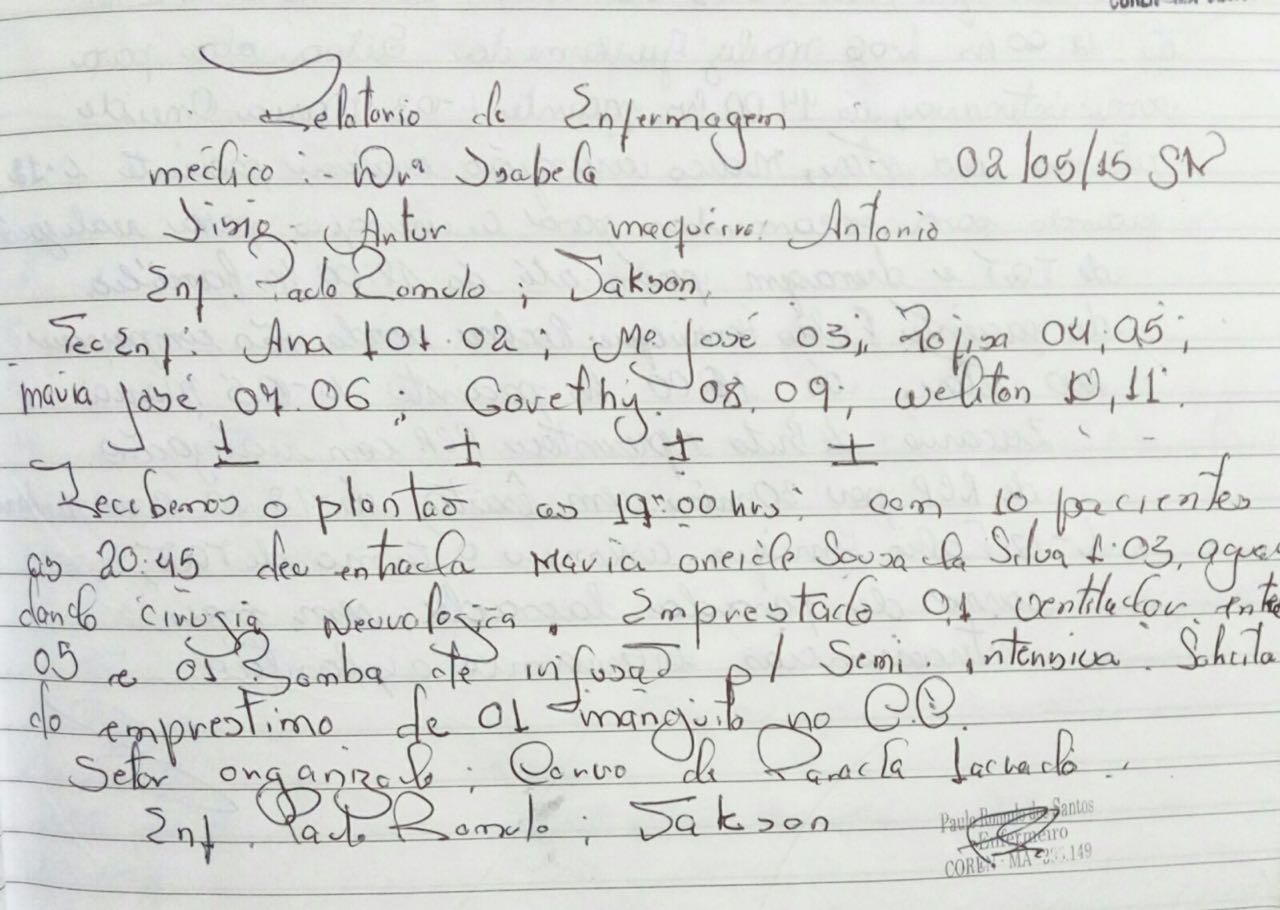 Relatorio de Enfermagem
médico: Drª Isabela 02/05/15 SN
Antur maqueiro. Antonio
Enf. Paulo Romulo; Jakson
Tec Enf: Ana 101 02; Mª José 03,, 04,05;
maria José 07.06; Gorethy. 08,09; weliton 10,11.
± ± ± ±
Recebemos o plantão as 19:00hrs. com 10 pacientes
as 20:45 deu entrada Maria oneide Sousa da Silva L:03, aguar
dando cirugia Neurologica. Emprestado 01 ventilador, inter
05 e 01 Bomba de infusão p/ Semi. intensiva. Solicita
do emprestimo de 01 manguito no C.C.
Setor organizado; Carro de Parada lacrado.
Enf. Paulo Romulo; Jakson
Paulo Romulo dos Santos
Enfermeiro
COREN - MA